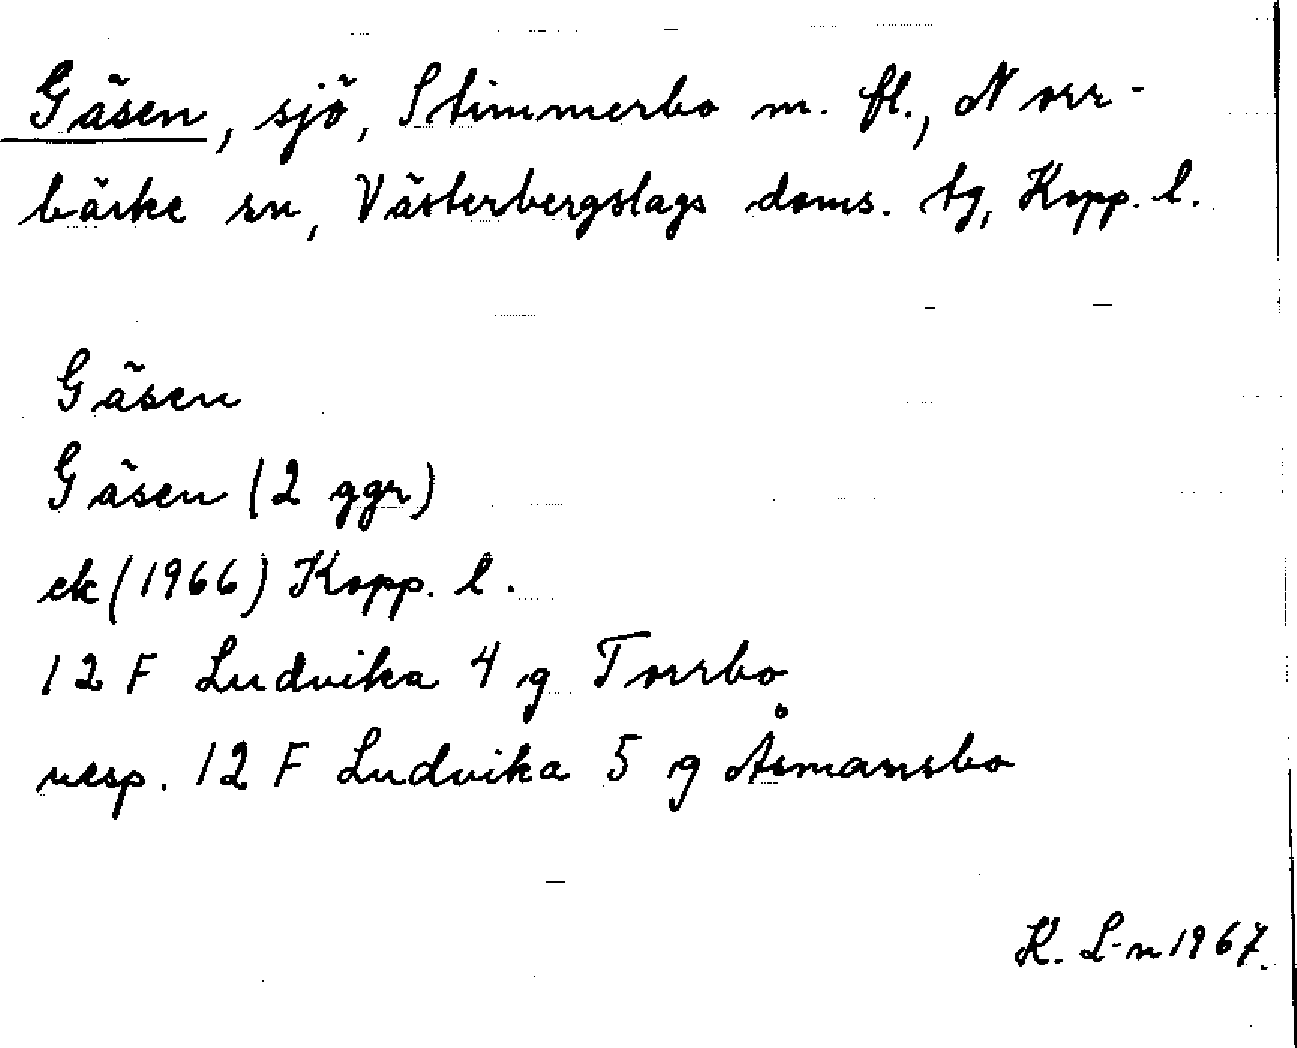 Gäsen, sjö, Stimmerbo m. fl., Norr-
bärke sn, Västerbergslags doms. tg, Kopp. l.
Gäsen
Gäsen (2 ggr)
ek (1966) Kopp. l.
12 F Ludvika 4 g Torrbo
resp. 12 F Ludvika 5 g Åsmansbo
K. L-n 1967.